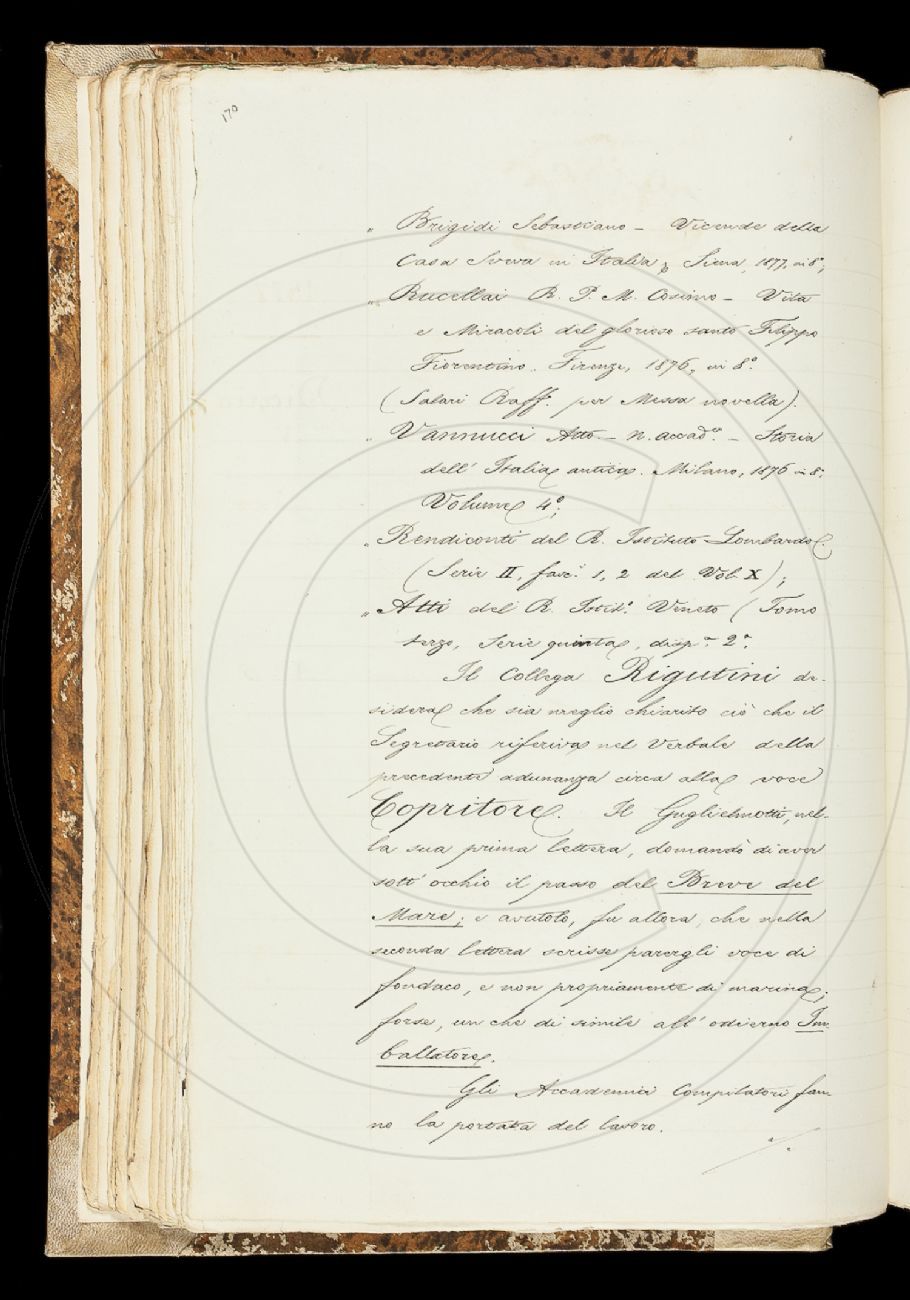 170
„ Brigidi Sebastiano – Vicende della
Casa Serva in Italia, Siena, 1877, in 8°;
„ Rucellai R. P. M. Cosimo – Vita
e Miracoli del glorioso santo Filippo
Fiorentino. Firenze, 1876, in 8°.
(Salari Raff. per Messa novella).
„ Vannucci Atto – n. accad.co – Storia
dell' Italia antica. Milano, 1876 in 8°.
Volume 4°;
„ Rendiconti del R. Istituto Lombardo.
(Serie II, fasc.i 1, 2 del Vol. X);
„ Atti del R. Istit.o Veneto (Tomo
terzo, serie quinta, disp.a 2.a
Il Collega Rigutini de-
sidera che sia meglio chiarito ciò che il
Segretario riferiva nel Verbale della
precedente adunanza circa alla voce
Copritore. Il Guglielmotti, nel-
la sua prima lettera, domandò di aver
sott' occhio il passo del Breve del
Mare; e avutolo, fu allora, che nella
seconda lettera scrisse parergli voce di
fondaco, e non propriamente di marina;
forse, un che di simile all' odierno Im
ballatore.
Gli Accademici Compilatori fan
no la portata del lavoro.